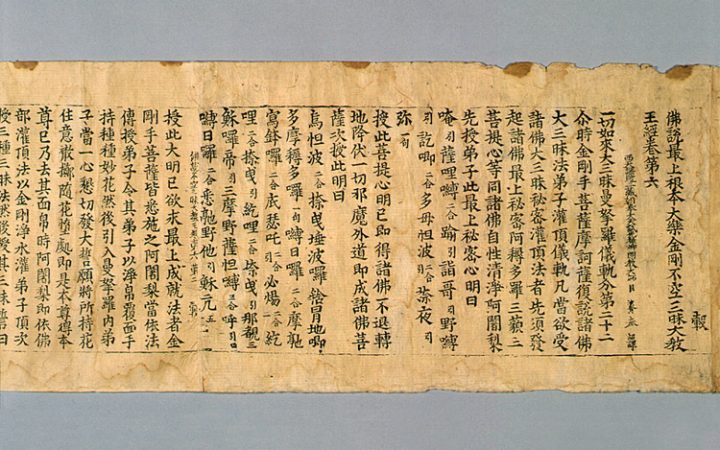 佛說最上根本大樂金剛不空三昧大教
王經卷第六
一切如來大三昧曼拏羅儀軌分第二十二
尒時金剛手菩薩摩訶薩復說諸佛
大三昧法弟子灌頂儀軌凡當欲受
諸佛大三昧秘密灌頂法者先須發
起諸佛最上秘密阿耨多羅三藐三
菩提心等同諸佛自性清淨阿闍梨
先授弟子此最上秘密心明曰
唵引薩哩嚩二合踰引誐哥引野嚩
引訖唧二合多母怛波二合茶夜引
弥一句
授此菩提心明已即得諸佛不退轉
地降伏一切邪魔外道即成諸佛菩
薩次授此明曰
烏怛波二合捺曳埵波囉二冒地唧
多摩耨多囉一句嚩日囉二合摩
室二合底瑟吒二合必二合紇
哩二合捺曳引紇哩二合捺曳引那
穌囉帝引三摩野薩怛嚩二合呼引
嚩日囉二合悉野他引穌
授此大明已欲求最上成就法者金
剛手菩薩皆悉施之阿闍梨當依法
傳授弟子令其弟子以淨帛覆面手
持種種妙花然後引入曼拏羅內弟
子當一心悉切發大誓願將所持花
住意散擲随花墮處即是本尊本
尊已乃去其面帛時阿闍梨即依佛
部灌頂法以金剛淨水灌弟子頂次
授三種三昧法然後授其三昧誓曰